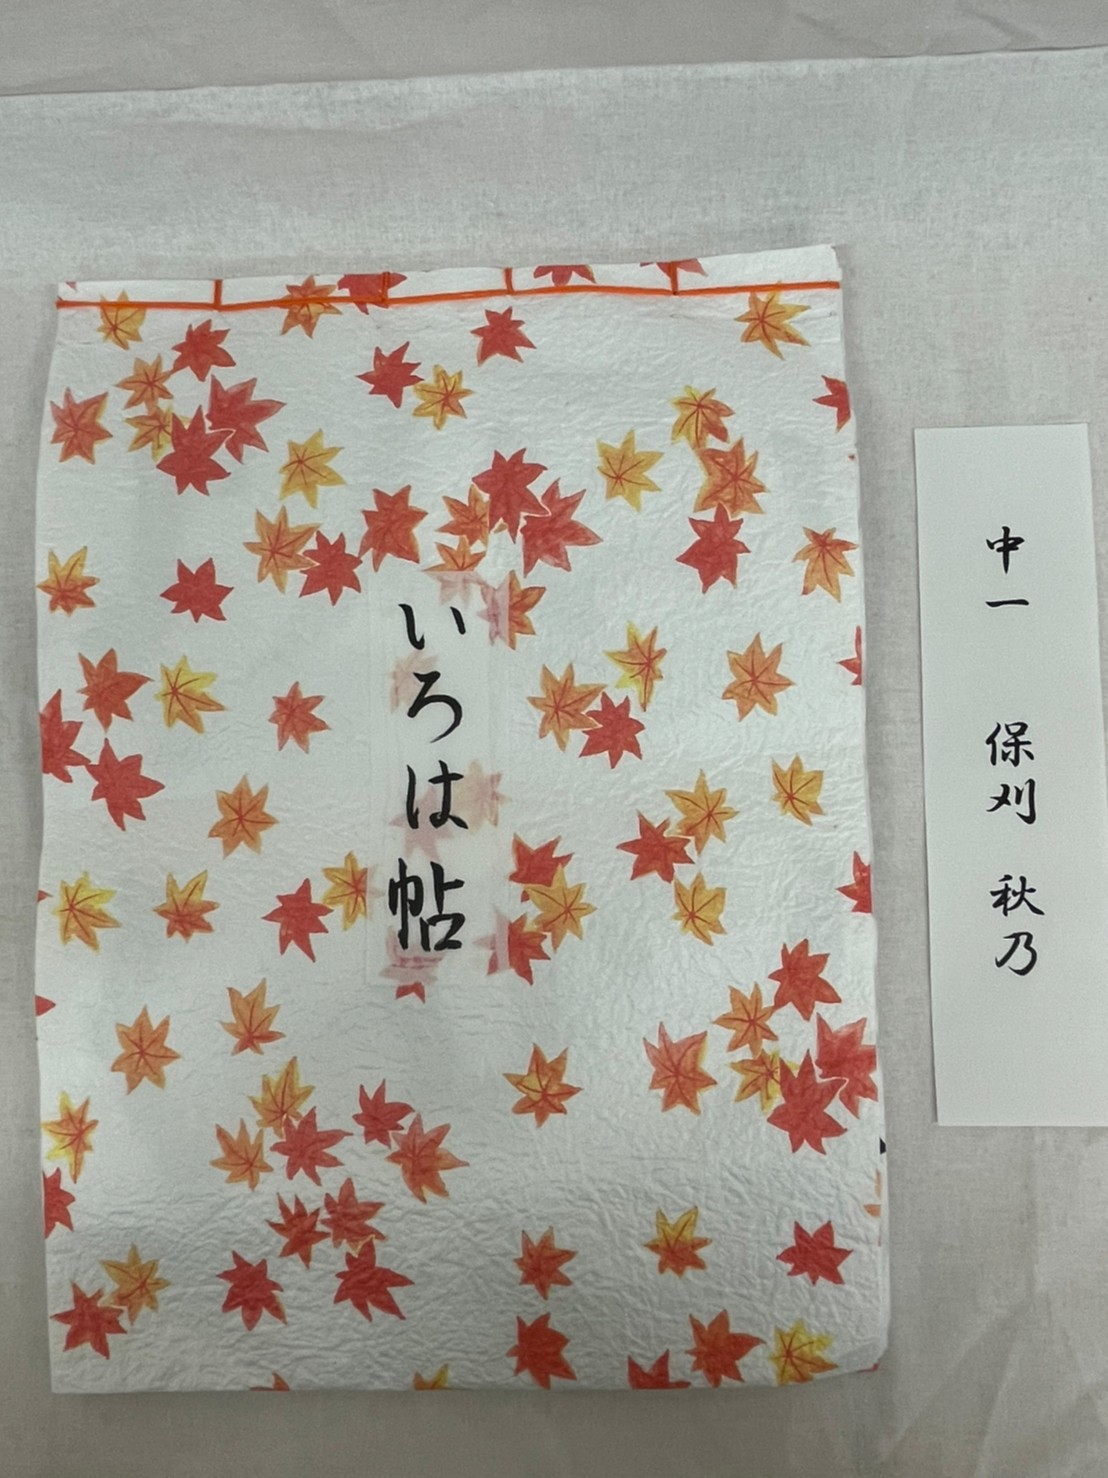 いろは帖
中一 保刈 秋乃